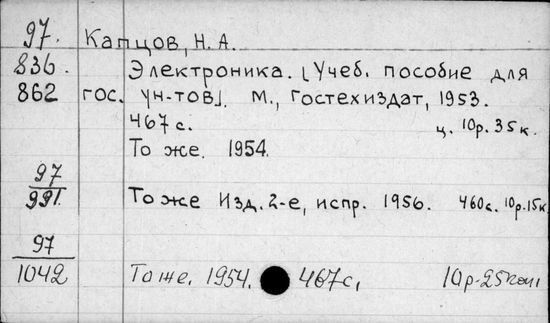 97. Капцов, Н. А.
836. Электроника. [Учеб. пособие для
862 гос. ун-тов]. М., Гостехиздат, 1953.
467 с. ц. 10р. 35к.
То же. 1954.
97
991. То же Изд. 2-е, испр. 1956. 460с. 10р.15к.
97
1042 То же. 1954. 467с, 10р-25коп